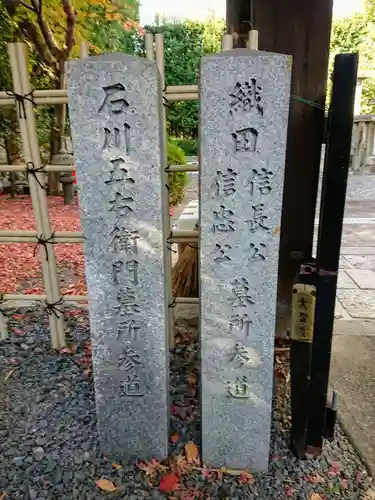 織田
信長公
信忠公
墓所参道
石川五右衛門墓所参道